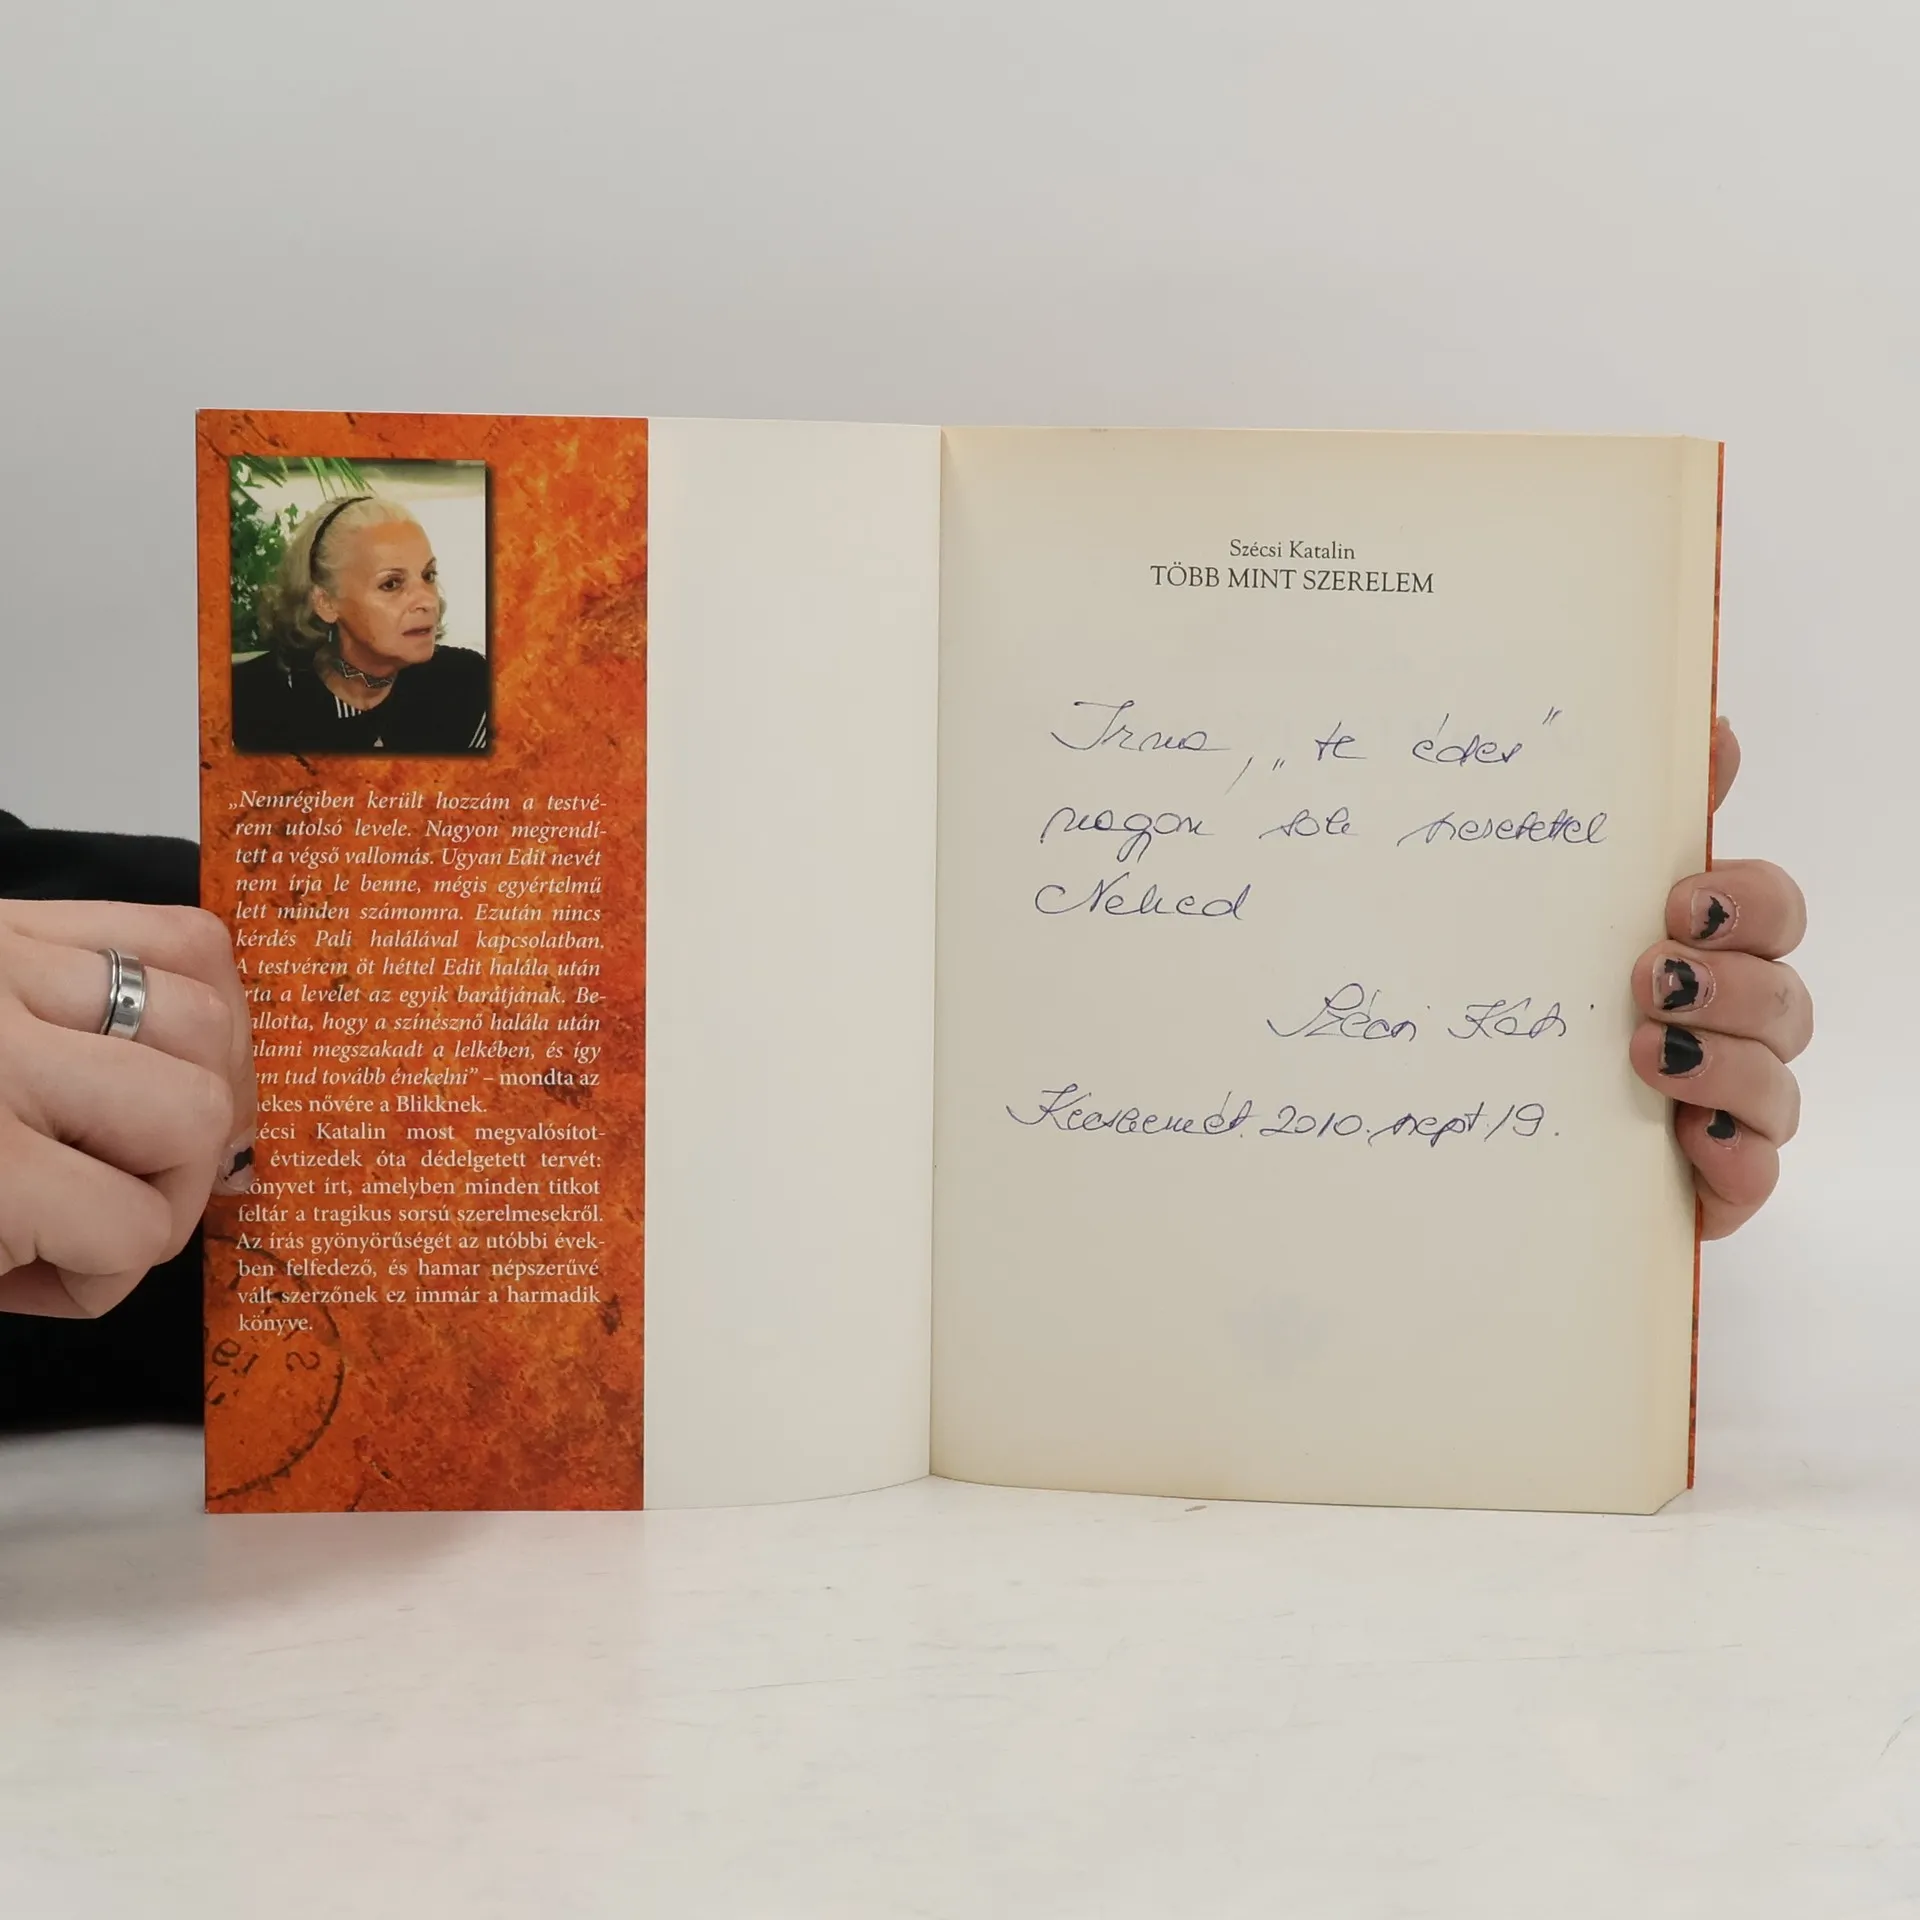 „Nemrégiben került hozzám a testvé-
rem utolsó levele. Nagyon megrendí-
tett a végső vallomás. Ugyan Edit nevét
nem írja le benne, mégis egyértelmű
lett minden számomra. Ezután nincs
kérdés Pali halálával kapcsolatban.
A testvérem öt héttel Edit halála után
rta a levelet az egyik barátjának. Be-
allotta, hogy a színésznő halála után
alami megszakadt a lelkében, és így
em tud tovább énekelni” – mondta az
nekes nővére a Blikknek.
zécsi Katalin most megvalósítot-
évtizedek óta dédelgetett tervét:
könyvet írt, amelyben minden titkot
feltár a tragikus sorsú szerelmesekről.
Az írás gyönyörűségét az utóbbi évek-
ben felfedező, és hamar népszerűvé
vált szerzőnek ez immár a harmadik
könyve.
Szécsi Katalin
TÖBB MINT SZERELEM
Irma, „te édes”
nagyon sok szeretettel
Neked
Szécsi Kati
Kecskemét. 2010. szept. 19.